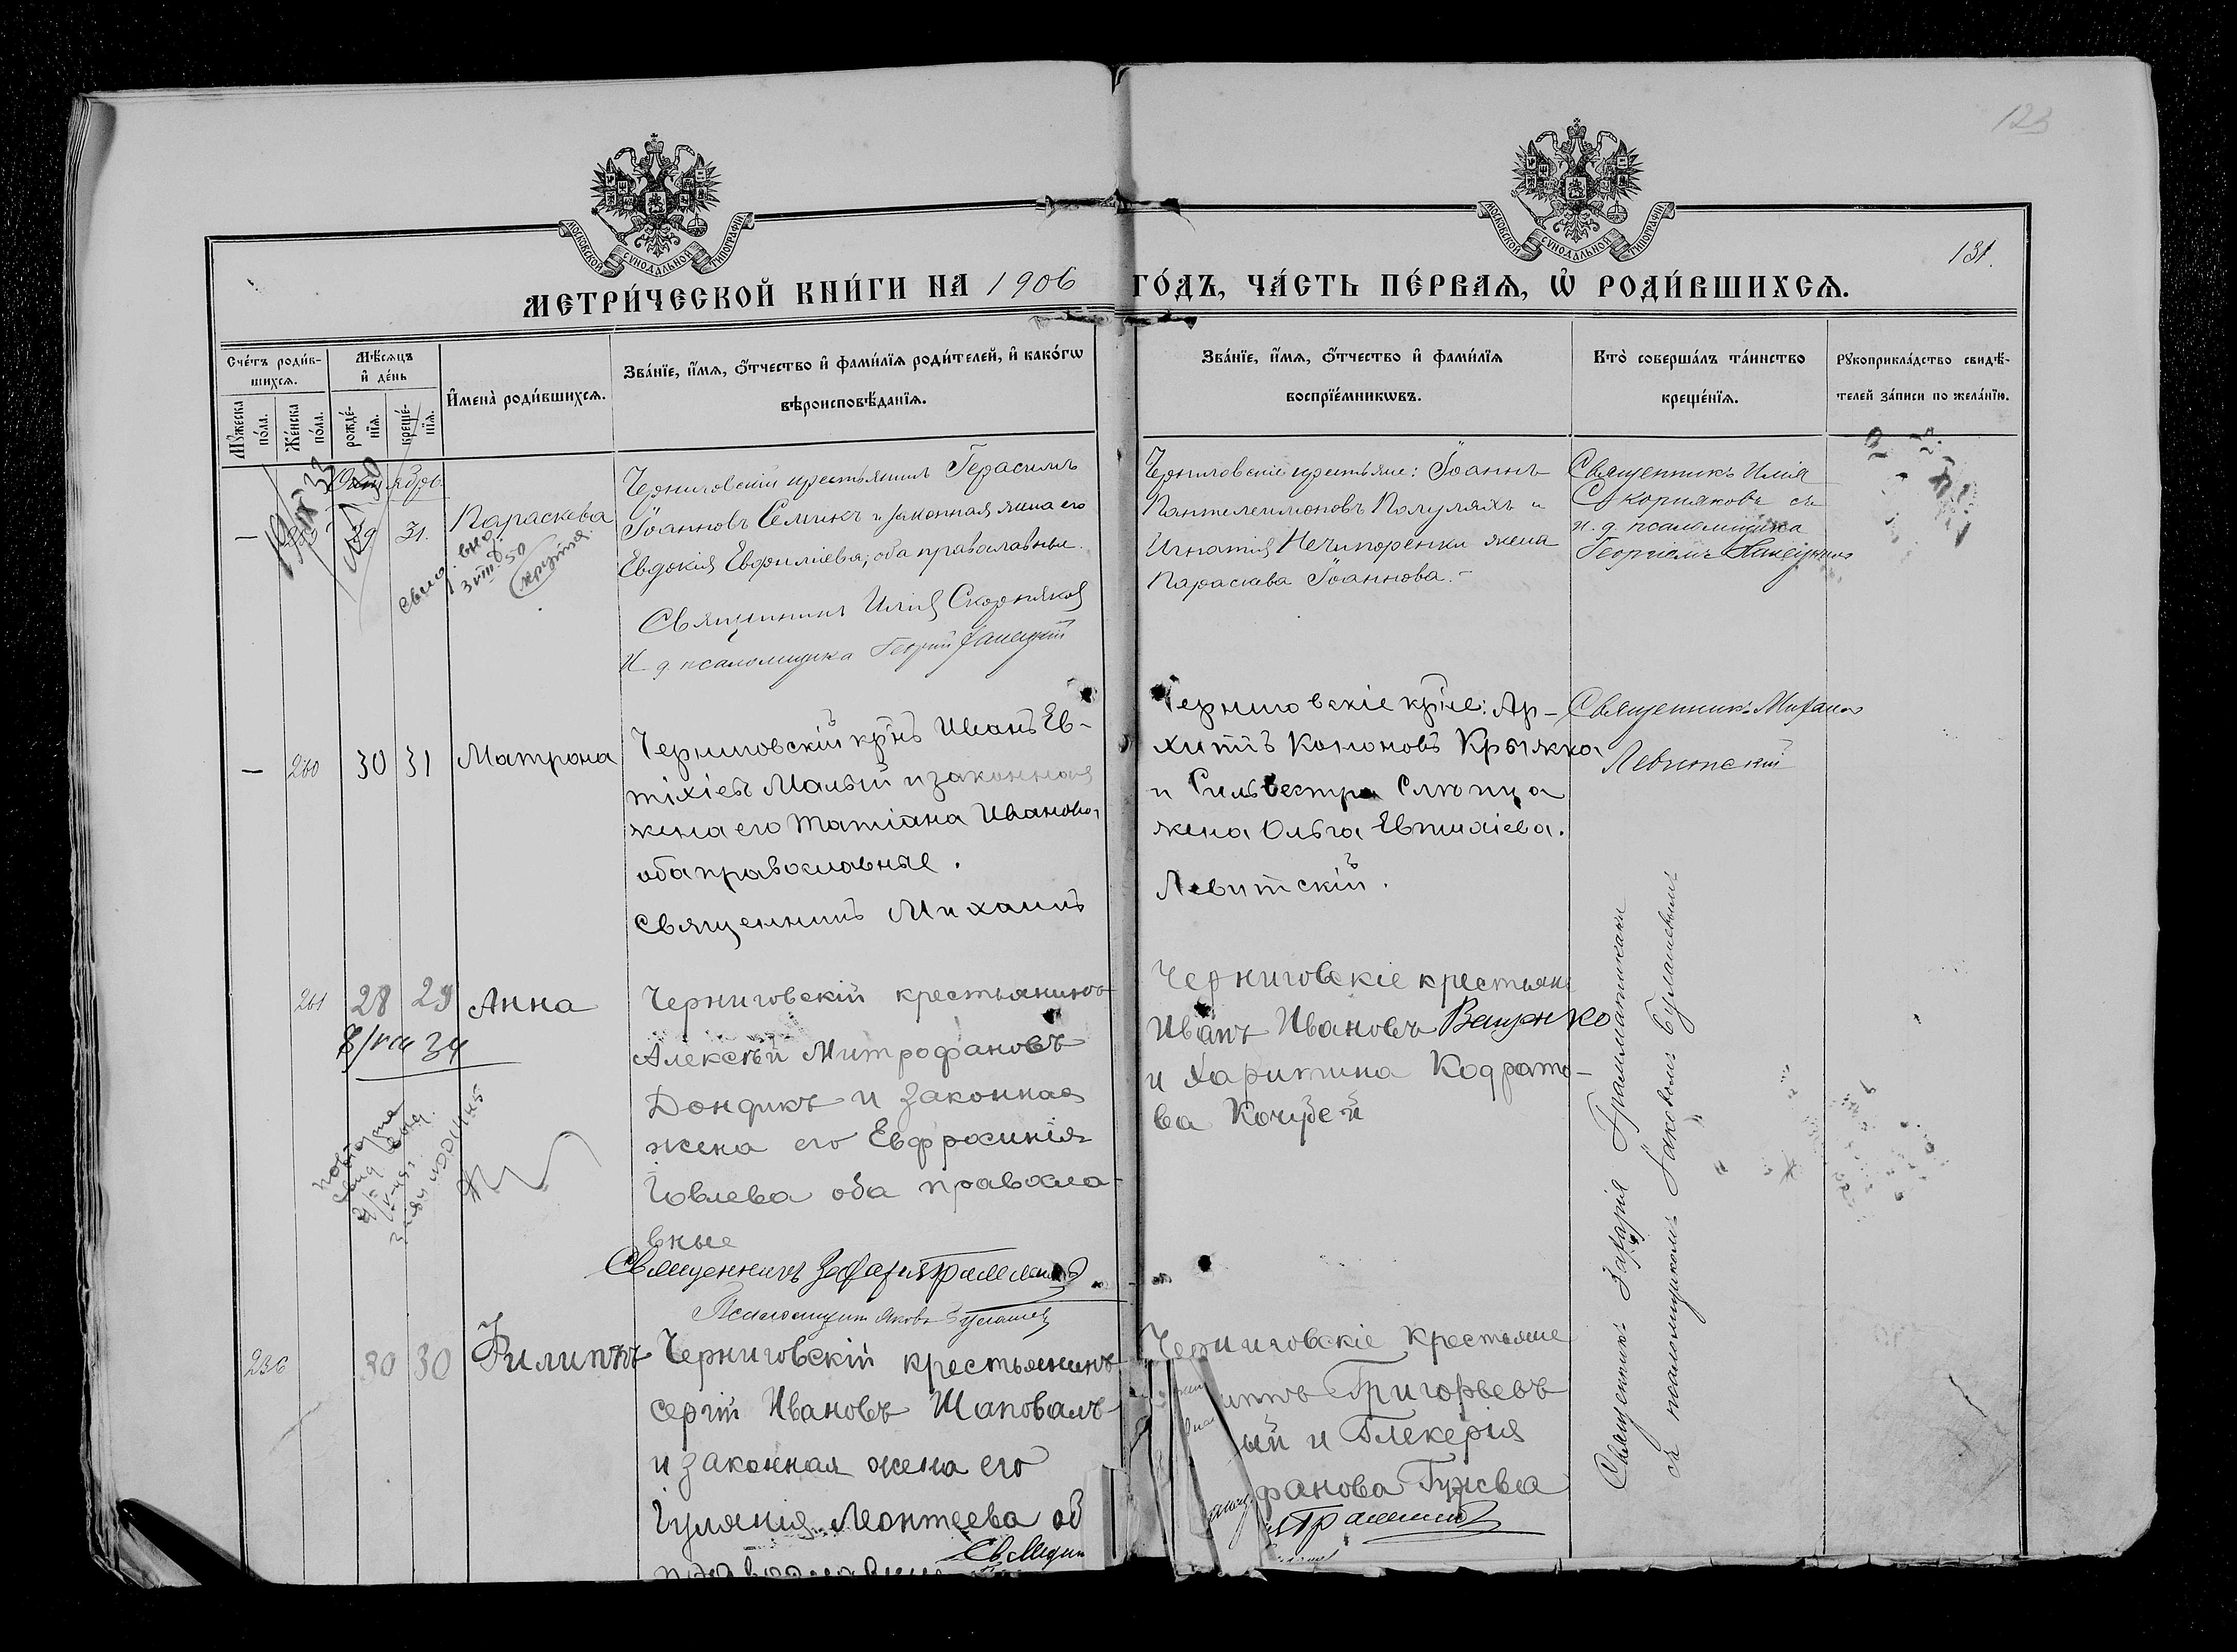 123
131.
МОСКОВСКОЙ СѴНОДАЛЬНОЙ ТИПОГРАФІИ
МОСКОВСКОЙ СѴНОДАЛЬНОЙ ТИПОГРАФІИ
МЕТРИ́ЧЕСКОЙ КНИ́ГИ НА 1906 ГО́ДЪ, ЧА́СТЬ ПЕ́РВАѦ, Ѡ҆ РОДИ́ВШИХСѦ.
Сче́тъ роди́в-
шихсѧ.
Мꙋ́жеска
по́ла.
Же́нска
по́ла.
Мѣ́сѧцъ
и҆ де́нь
рожде́-
нїѧ.
креще́-
нїѧ.
И҆мена̀ роди́вшихсѧ.
Зва́нїе, и҆́мѧ, ѻ҆́тчество и҆ фами́лїѧ роди́телей, и҆ како́гѡ
вѣроисповѣ́данїѧ.
Зва́нїе, и҆́мѧ, ѻ҆́тчество и҆ фами́лїѧ
воспрїе́мникѡвъ.
Кто̀ соверша́лъ та́инство
креще́нїѧ.
Рꙋкоприкла́дство свидѣ́-
телей за́писи по жела́нїю.
— 29 31. Параскева
Черниговскій крестьянинъ Герасимъ
Іоанновъ Семикъ и законная жена его
Евдокія; оба православные.
Священникъ Илія Скорняковъ
И. д. псаломщика Георгій
Черниговскіе крестьяне: Іоаннъ
Пантелеимоновъ и
Игнатія Нечипоренки жена
Параскева Іоаннова.–
Священникъ Илія
Скорняковъ съ
и. д. псаломщика
Георгіемъ
— 260 30 31 Матрона
Черниговскій крнъ Иванъ Ев-
тихіевъ Малый и законная
жена его Татіана Иванова,
оба православные.
Священникъ Михаилъ
Черниговскіе крне: Ар-
хипъ Кононовъ Крыжко
и Сильвестра Слюпца
жена Ольга
Левитскій.
Священникъ Михаилъ
Левитскій
261 28 29 Анна
8/VIII 34
Черниговскій крестьянинъ
Алексѣй Митрофановъ
Дондикъ и законная
жена его Евфросинія
Іовлева оба правосла-
вные
Священникъ Захарія
Псаломщикъ Яковъ
Черниговскіе крестьяне
Иванъ Ивановъ Ващенко
и Харитина Кодрато-
ва Кочубей
Священникъ Захарія
съ псаломщикомъ Іаковомъ
236 30 30 Филиппъ
Черниговскій крестьянинъ
Сергій Ивановъ Шаповалъ
и законная жена его
Іуліанія Леонтеева об
православные
Черниговскіе крестьяне
Григорьевъ
ый и Глекерія
фанова Гужва